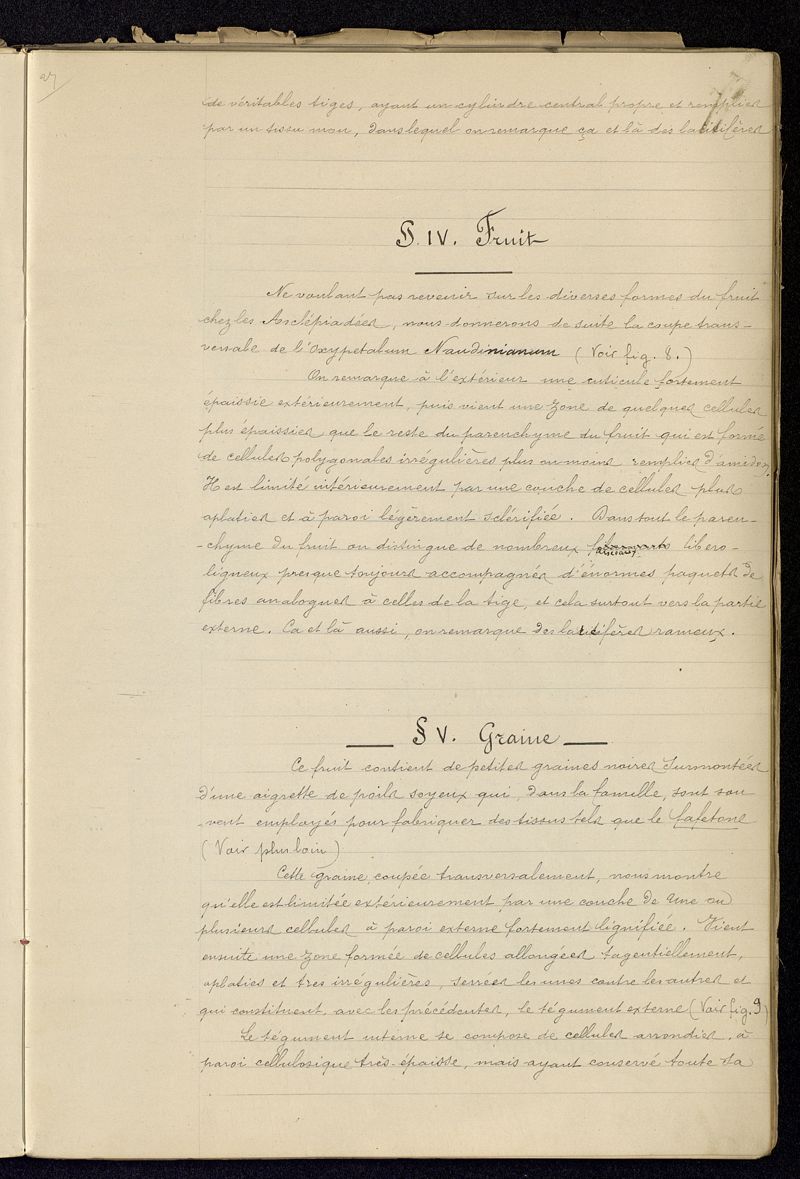 27
de véritables tiges, ayant un cylindre central propre et remplies
par un tissu mou, dans lequel on remarque ça et là des laticifères
§. IV. Fruit
Ne voulant pas revenir sur les diverses formes du fruit
chez les Asclépiadées, nous donnerons de suite la coupe trans-
versale de l'Oxypetalum Naudinianum (Voir fig. 8.)
On remarque à l'extérieur une cuticule fortement
épaissie extérieurement, puis vient une zone de quelques cellules
plus épaissies que le reste du parenchyme du fruit qui est formé
de cellules polygonales irrégulières plus ou moins remplies d'amidon,
Il est limité intérieurement par une couche de cellules plus
aplaties et à paroi légèrement sclérifiée. Dans tout le paren-
-chyme du fruit on distingue de nombreux faisceaux libero-
ligneux presque toujours accompagnés d'énormes paquets de
fibres analogues à celles de la tige, et cela surtout vers la partie
externe. Ca et là aussi, on remarque des laticifères rameux.
§ V. Graine
Ce fruit contient de petites graines noires surmontées
d'une aigrette de poils soyeux qui, dans la famille, sont sou
-vent employés pour fabriquer des tissus tels que le Cafetone
(Voir plus loin)
Cette graine, coupée transversalement, nous montre
qu'elle est limitée extérieurement par une couche de une ou
plusieurs cellules à paroi externe fortement lignifiée. Vient
ensuite une zone formée de cellules allongées tagentiellement,
aplaties et tres irrégulières, serrées les unes contre les autres et
qui constituent, avec les précédentes, le tégument externe (Voir fig. 9)
Le tégument interne se compose de cellules arrondies, à
paroi cellulosique très-épaisse, mais ayant conservé toute sa